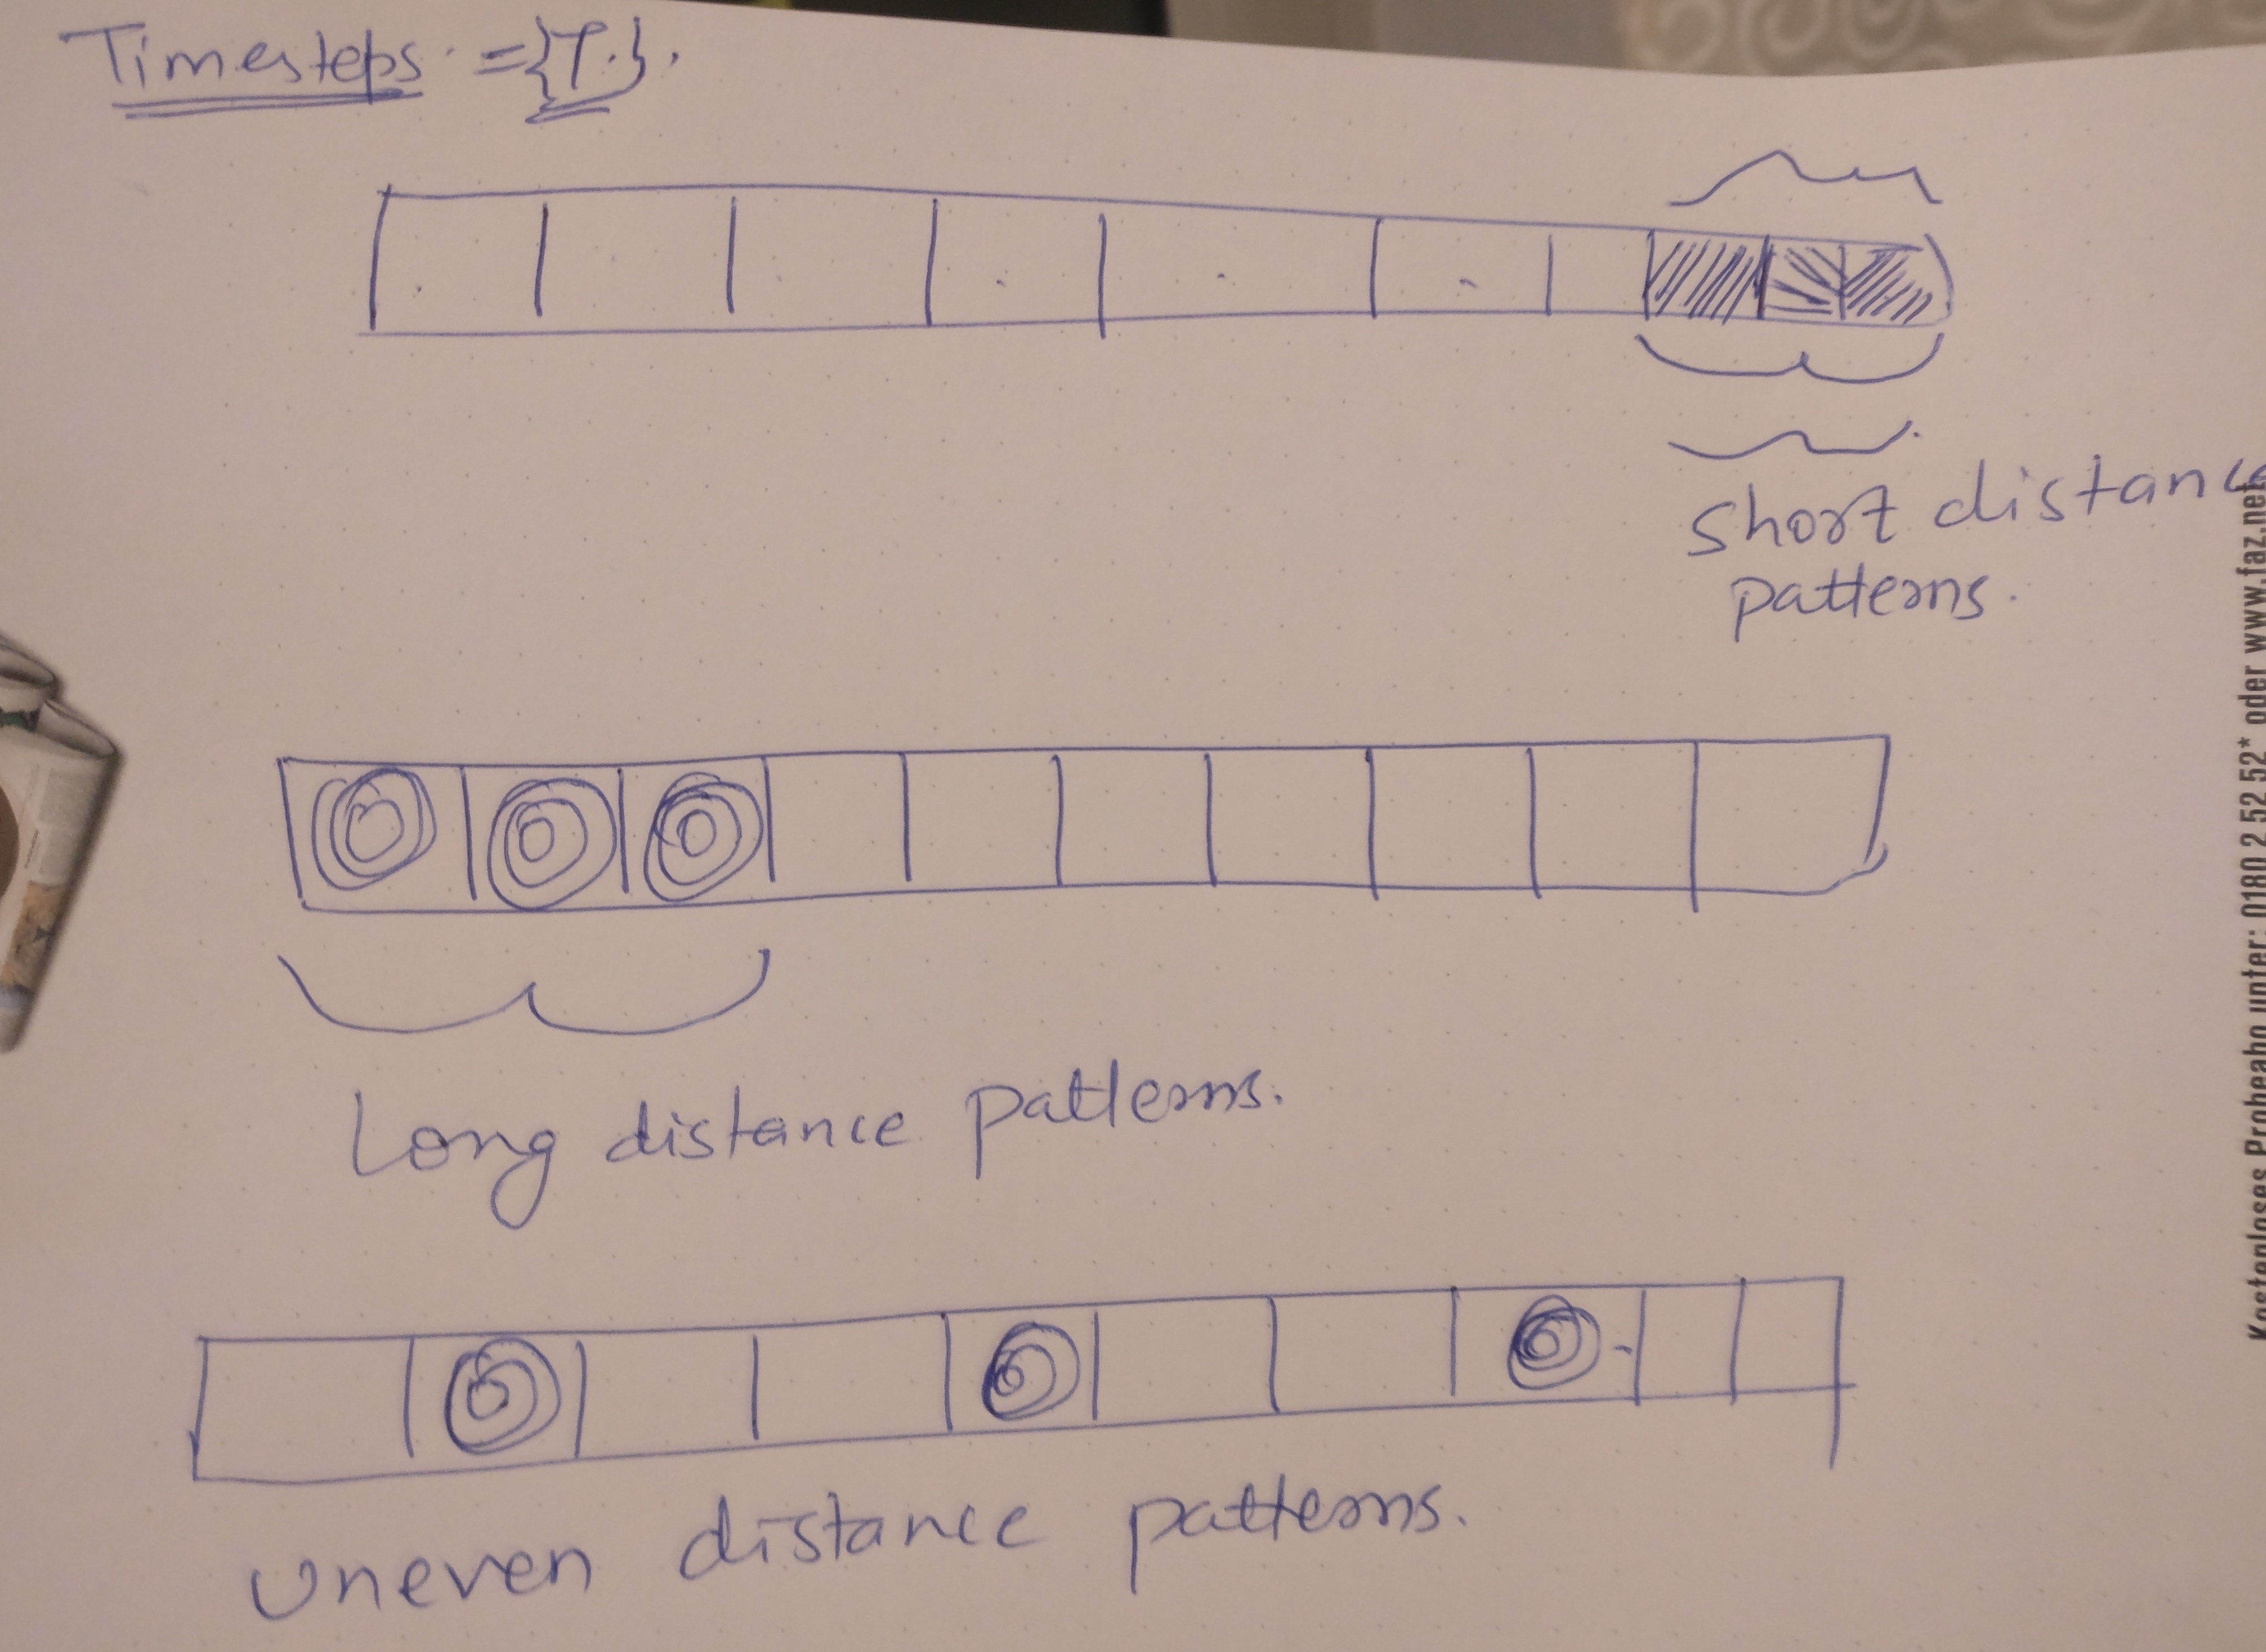 Timesteps = {T.}.
short distance
patterns.
Long distance patterns.
uneven distance patterns.
Kostenloses Probeabo unter: 0180 2 52 52* oder www.faz.net